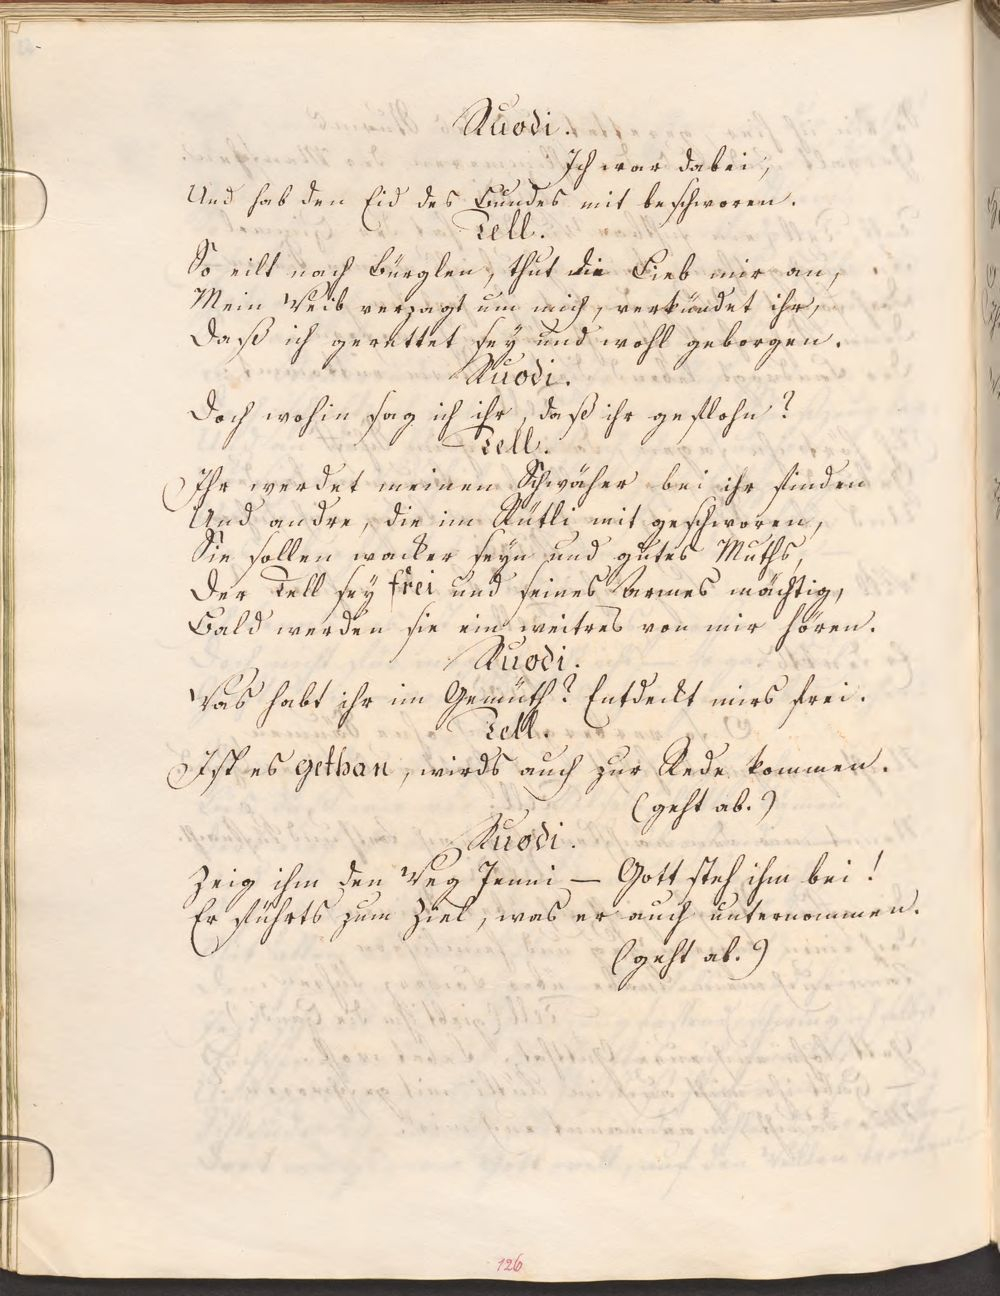 Ruodi.
Ich war dabei,
Und hab den Eid des Bundes mit beschworen.
Tell.
So eilt nach Bürglen, thut die Lieb mir an,
Mein Weib verzagt um mich, verkündet ihr,
Daß ich gerettet sey und wohl geborgen.
Ruodi.
Doch wohin sag ich ihr, daß ihr geflohn?
Tell.
Ihr werdet meinen Schwäher bei ihr finden
Und andre, die im Rütli mit geschworen,
Sie sollen wacker seyn und gutes Muths,
Der Tell sey frei und seines Armes mächtig,
Bald werden sie ein weitres von mir hören.
Ruodi.
Was habt ihr im Gemüth? Entdeckt mirs frei.
Tell.
Ist es gethan, wirds auch zur Rede kommen.
(geht ab.)
Ruodi.
Zeig ihm den Weg Jenni — Gott steh ihm bei!
Er führts zum Ziel, was er auch unternommen.
(geht ab.)
126